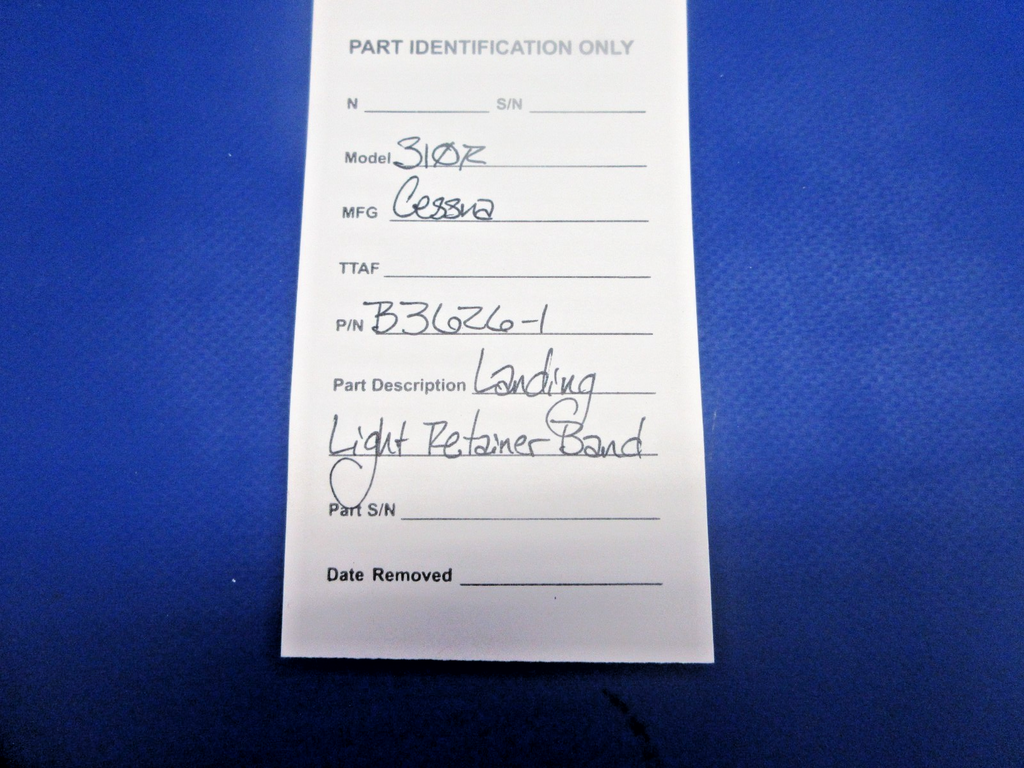 PART IDENTIFICATION ONLY
N S/N
Model 310R
MFG Cessna
TTAF
P/N B3626-1
Part Description Landing
Light Retainer Band
Part S/N
Date Removed